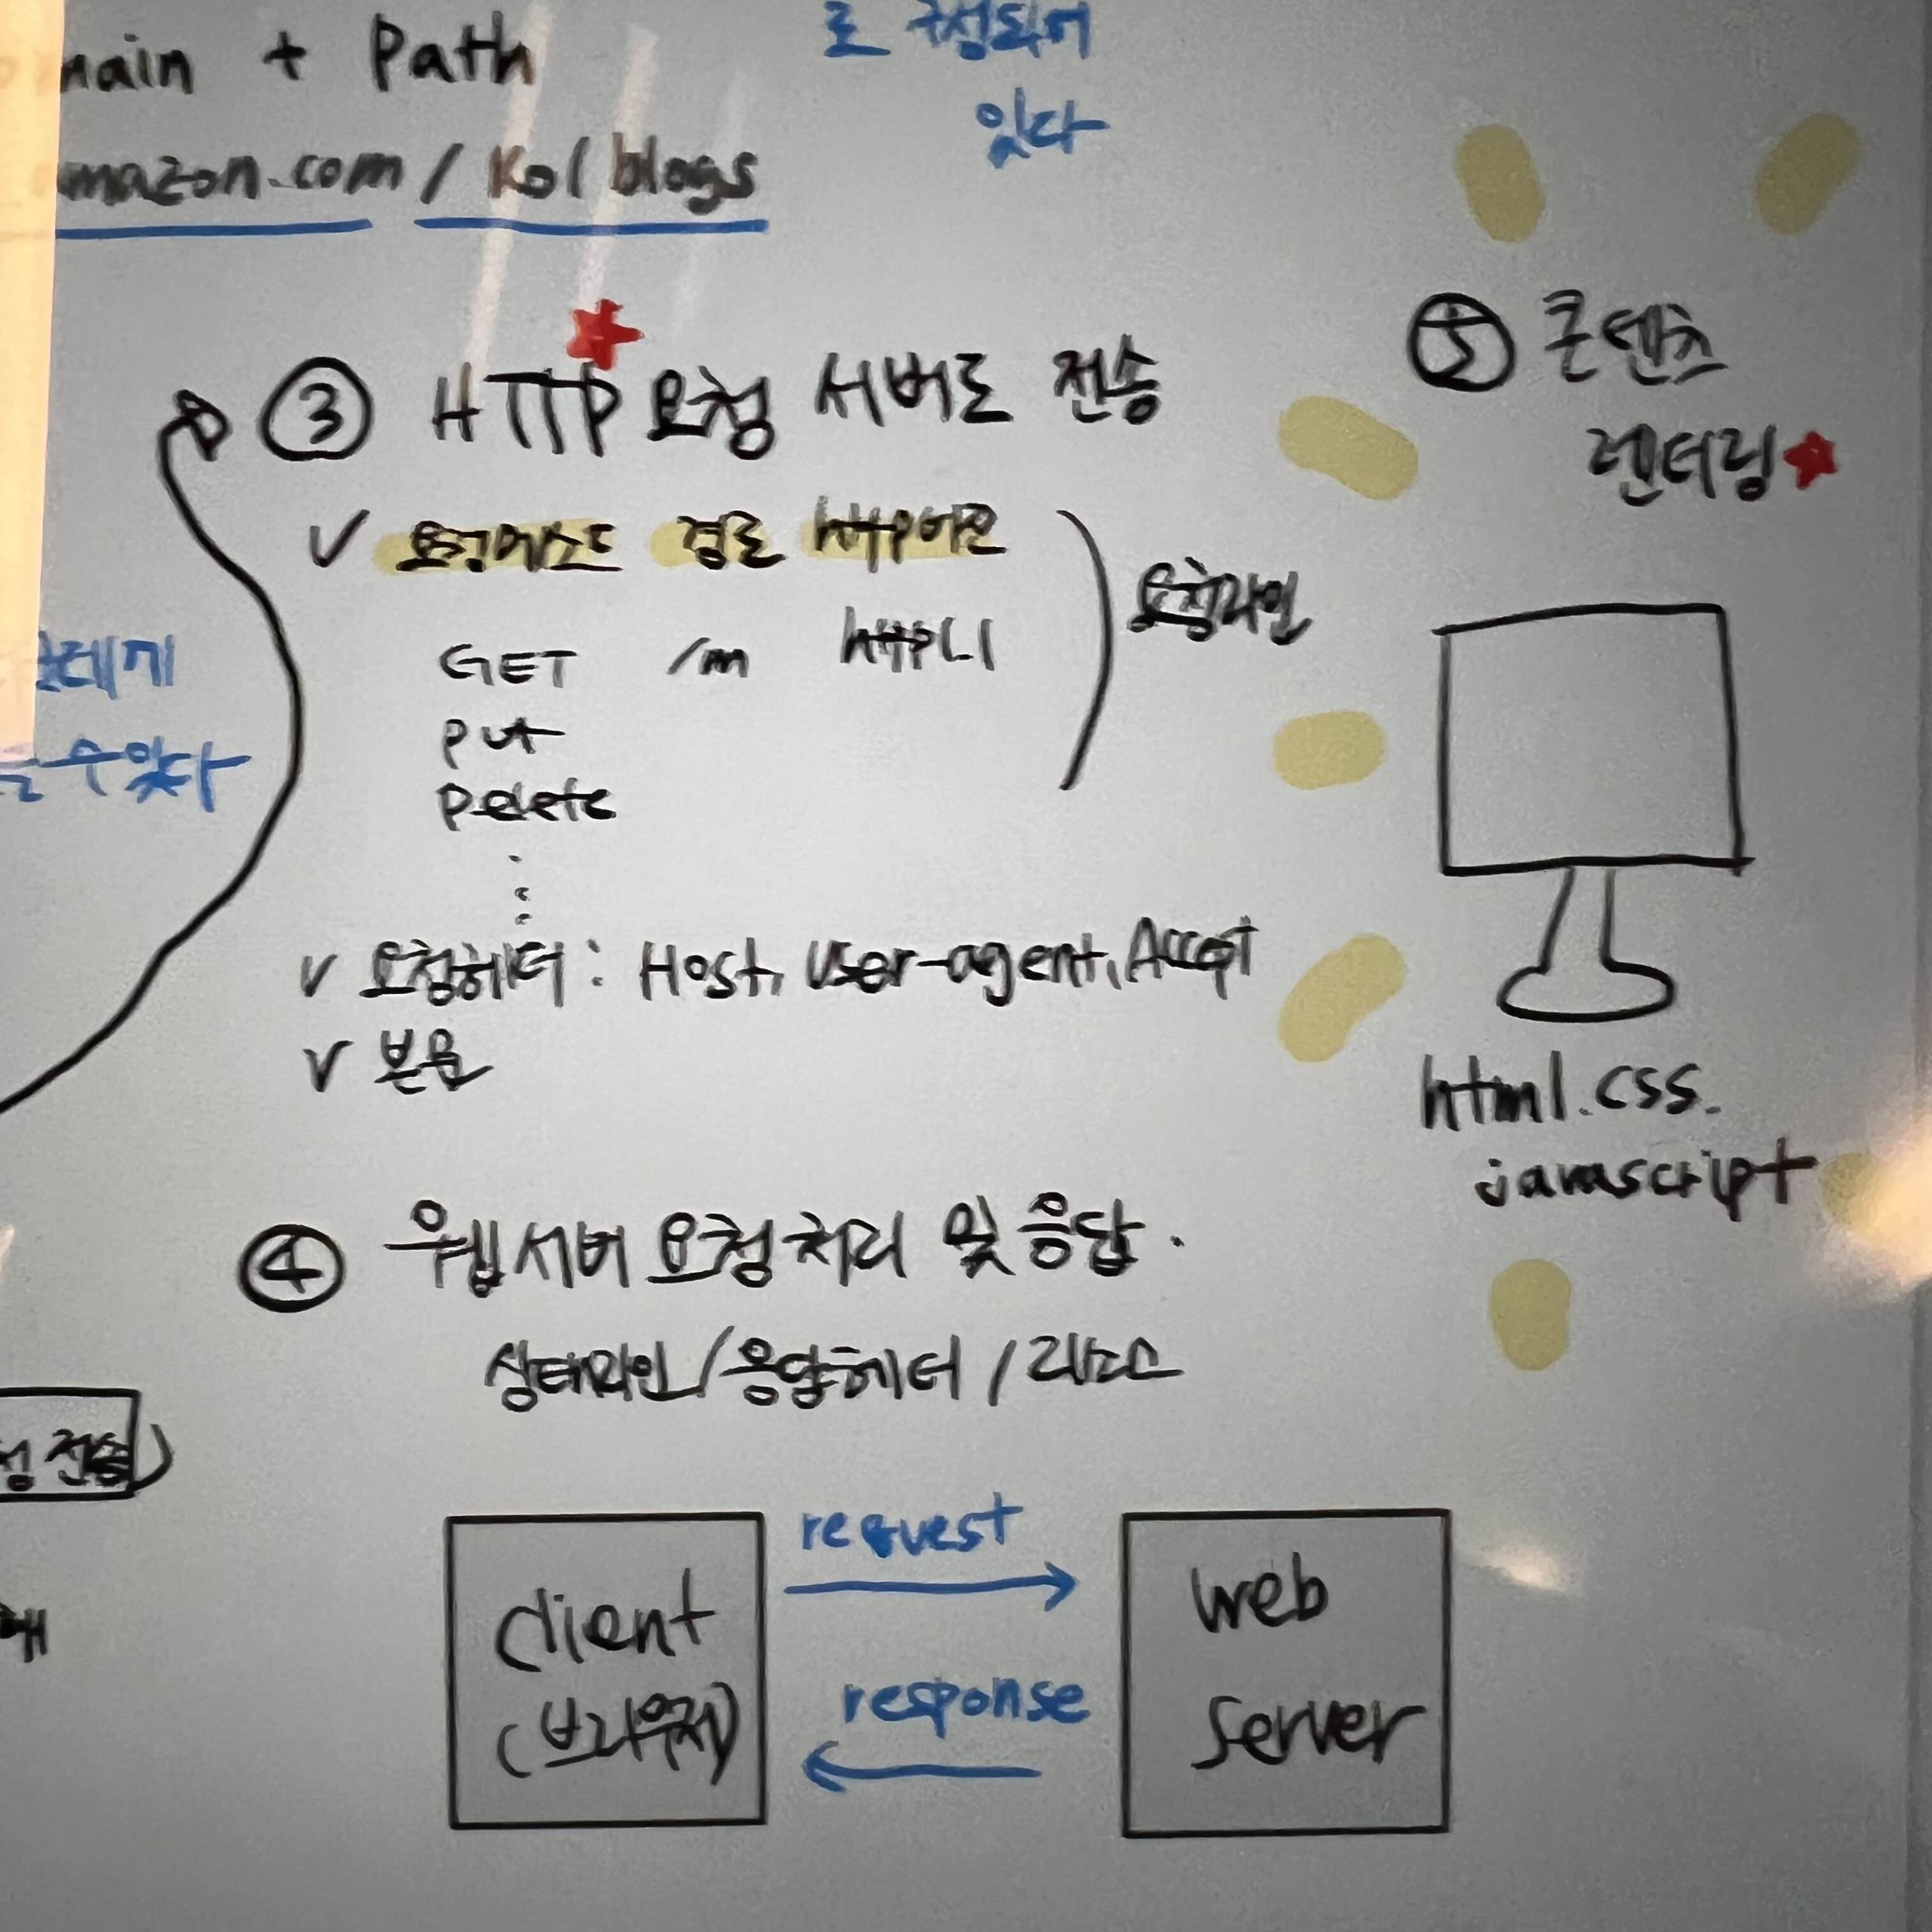 main + Path
amazon.com / Ko / blogs
로 구성되어
있다
③ HTTP 요청 서버로 전송
V 요청메소드 경로 http버전
GET /m http1.1
put
Delete
요청라인
V 요청헤더 : Host, User-agent, Accept
V 본문
수 있다
④ 웹서버 요청 처리 및 응답.
상태라인 / 응답헤더 / 리소스
전송)
client
(브라우저)
request
response
web
server
⑤ 콘텐츠
렌더링
html. css.
javascript